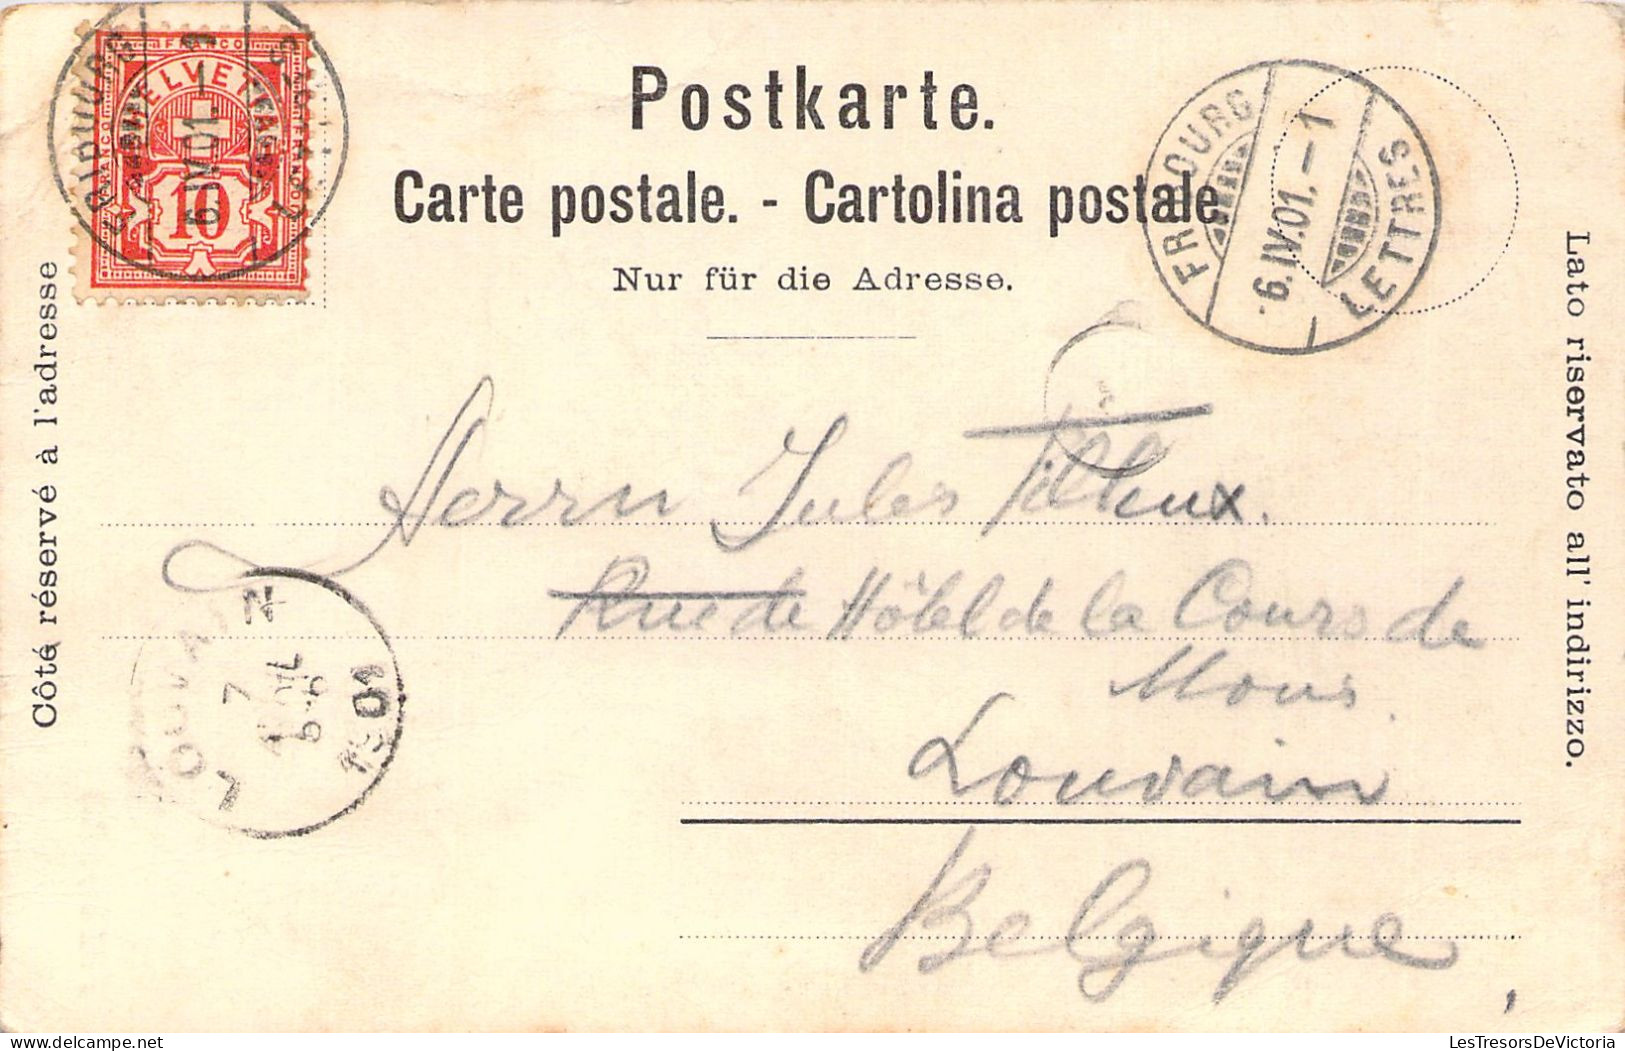 FRANCO
HELVETIA
FRANCO
FRANCO
10
6.IV.01.-1
Postkarte.
Carte postale. - Cartolina postale.
Nur für die Adresse.
FRIBOURG
6.IV.01.-1
LETTRES
Côté réservé à l'adresse
Lato riservato all' indirizzo.
Herrn Jules
Rue de Hôtel de la Cours de
Mons.
Louvain
Belgique
LOUVAIN
7
1901
LesTresorsDeVictoria